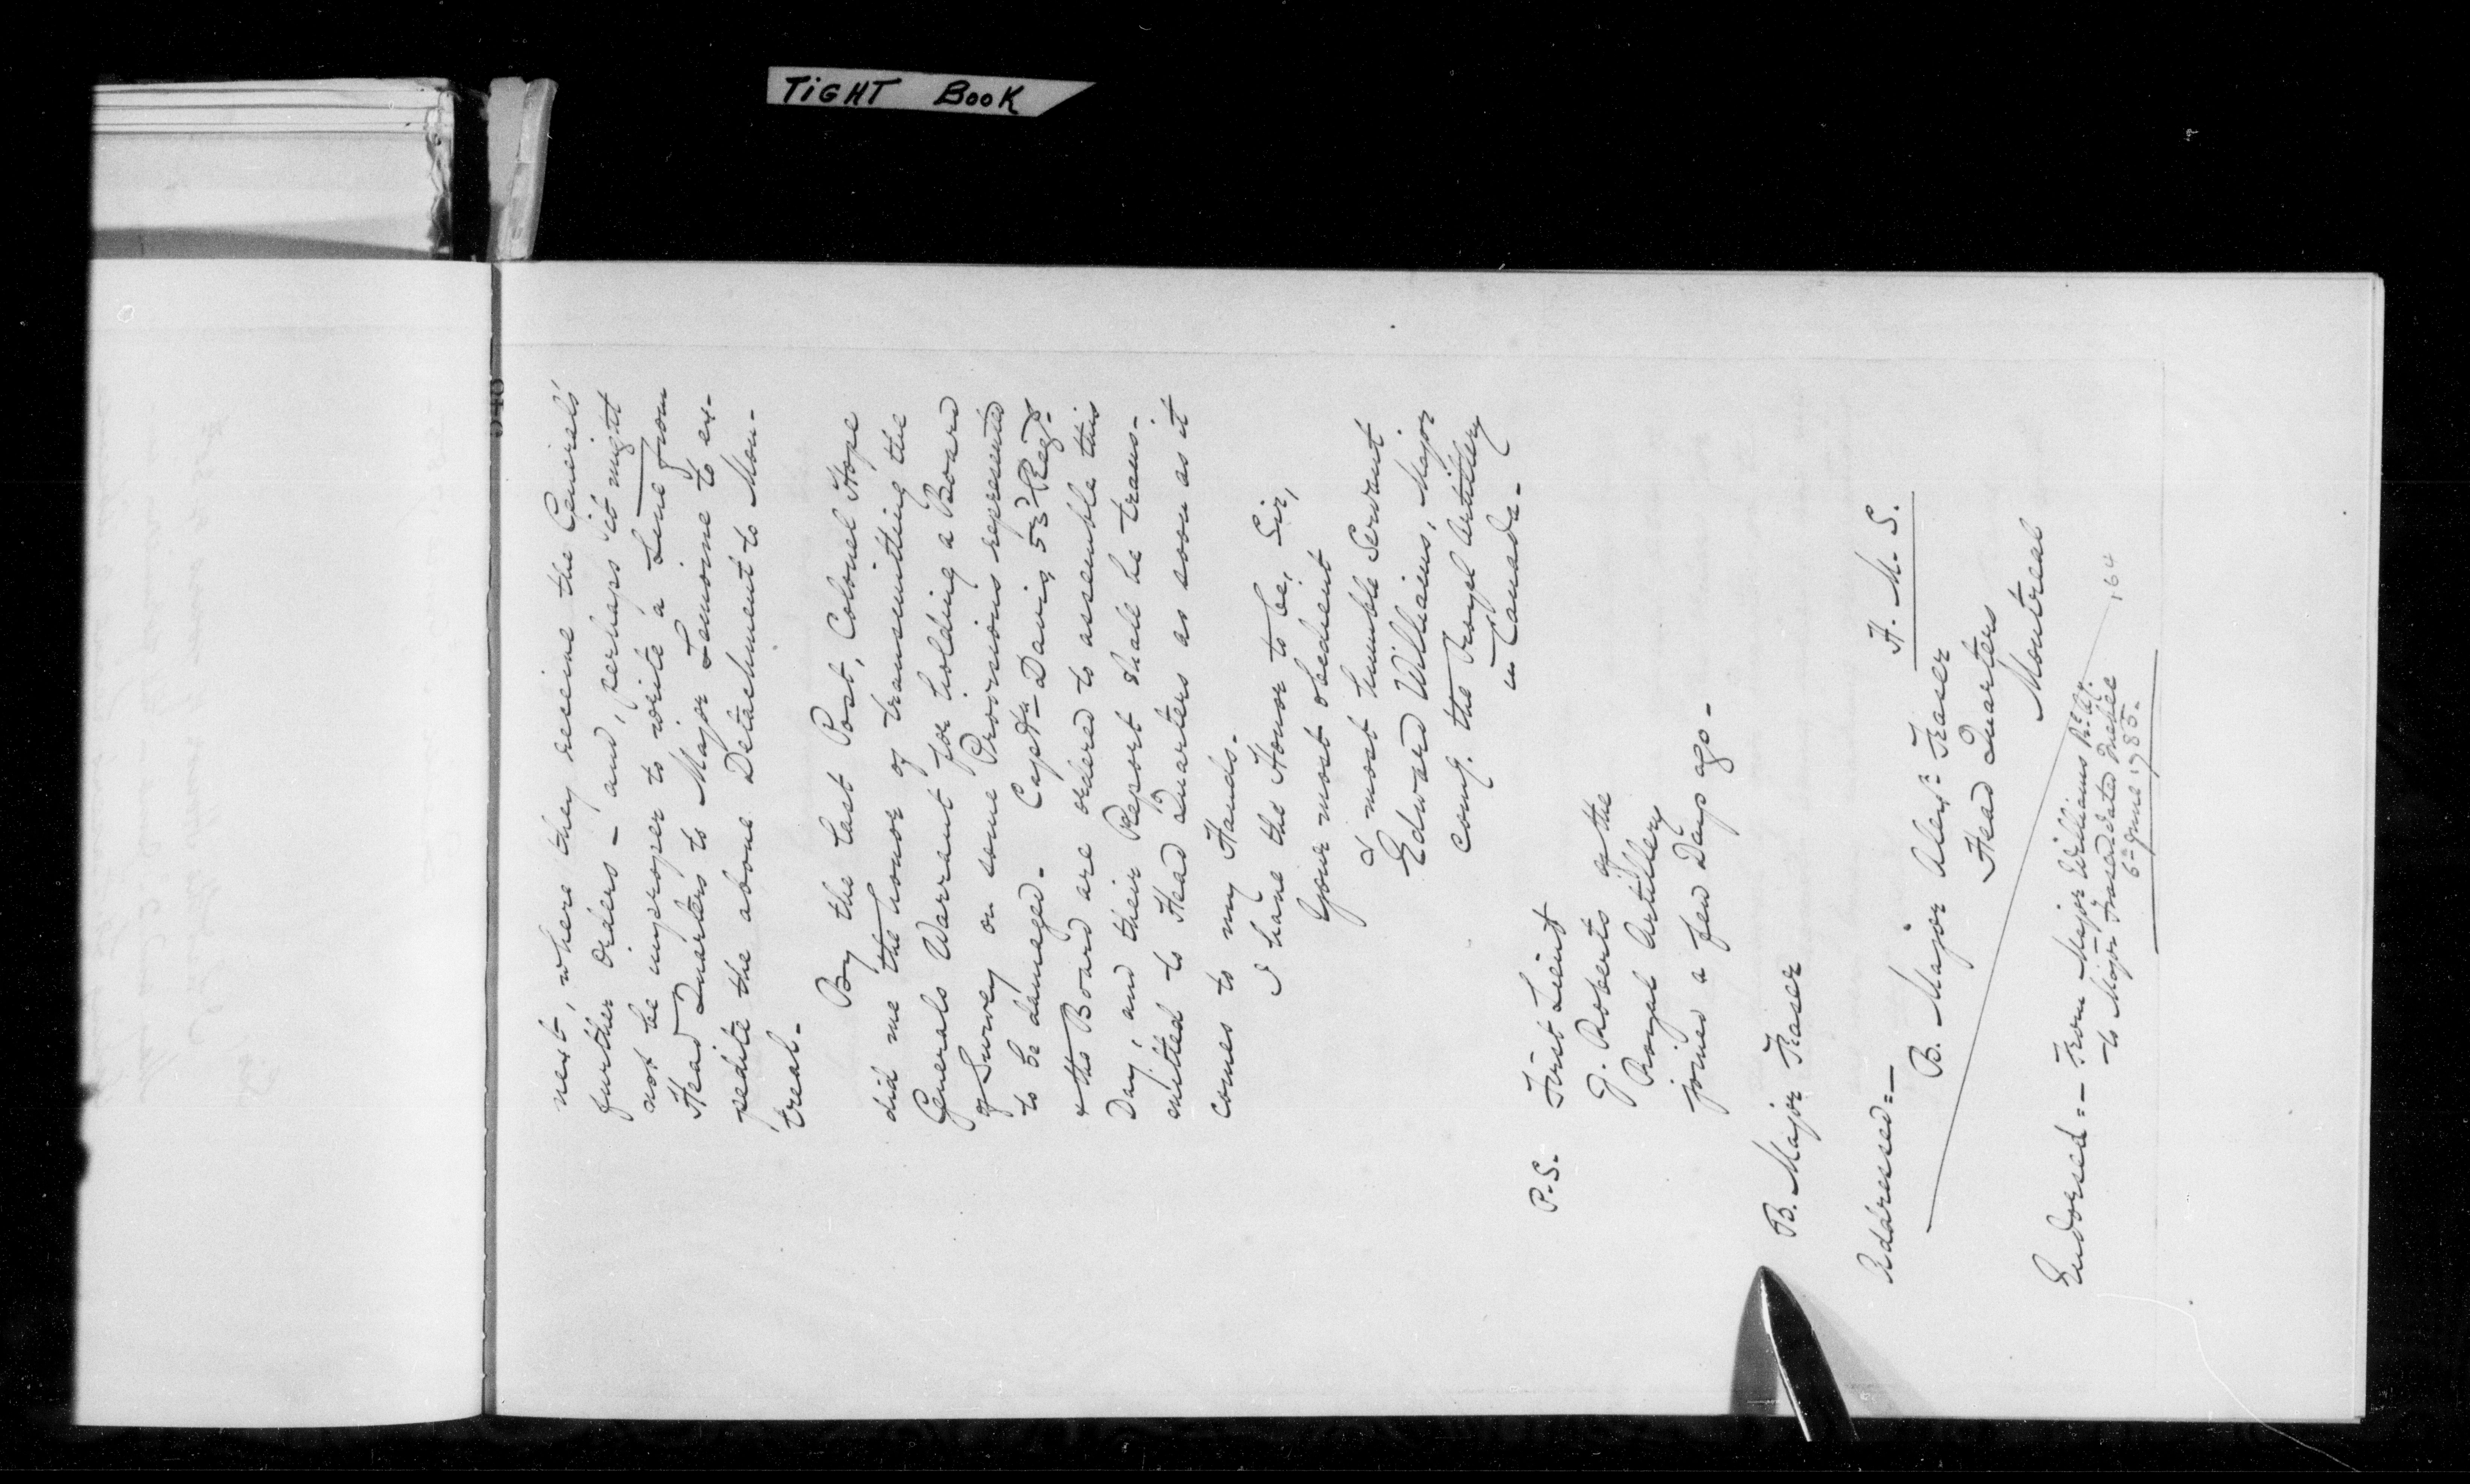 TIGHT BOOK
next, where they receive the General's
further orders - and, perhaps it might
not be improper to write a Line from
Head Quarters to Major Lemoine to ex-
pedite the above Detachment to Mon-
treal.
By the last Post, Colonel Hope
did me the honor of transmitting the
Generals Warrant for holding a Board
of Survey on some Provisions represented
to be damaged. Captn Davis, 53d Regt.
& the Board are ordered to assemble this
Day, and their Report shall be trans-
mitted to Head Quarters as soon as it
comes to my Hands.
I have the Honor to be, Sir,
Your most obedient
& most humble Servant
Edward Williams, Major
comg. the Royal Artillery
in Canada.
P.S. First Lieut
G. Roberts of the
Royal Artillery
joined a few Days ago.
B. Major Fraser
Addressed:-
H. M. S.
B. Major Alexr. Fraser
Head Quarters
Montreal
Endorsed:- From Major Williams Rl. Ay.
to Major Fraser dated Quebec
6th June 1785.
164